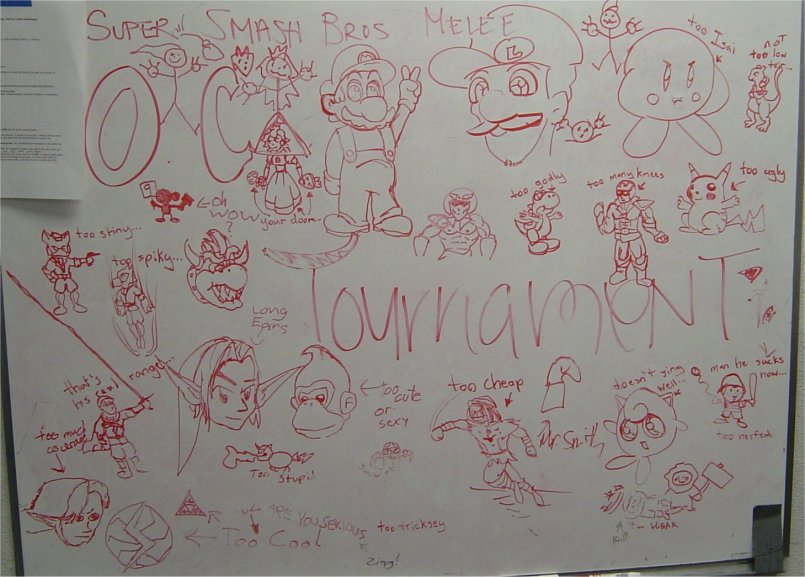 SUPER SMASH BROS MELEE
OC
too Isai
not too low tier...
L
oh wow
?
your doom...
too godly
too many knees
too ugly
too shiny...
too spiky...
Long Ears
Tournament
that's his real range...
too cute or sexy
too cheap
Mr Smith
doesn't sing well...
man he sucks now...
too nerfed
too much courage
Too Stupid
ARE YOU SERIOUS
too tricksey
Too Cool
Zing!
WEAK